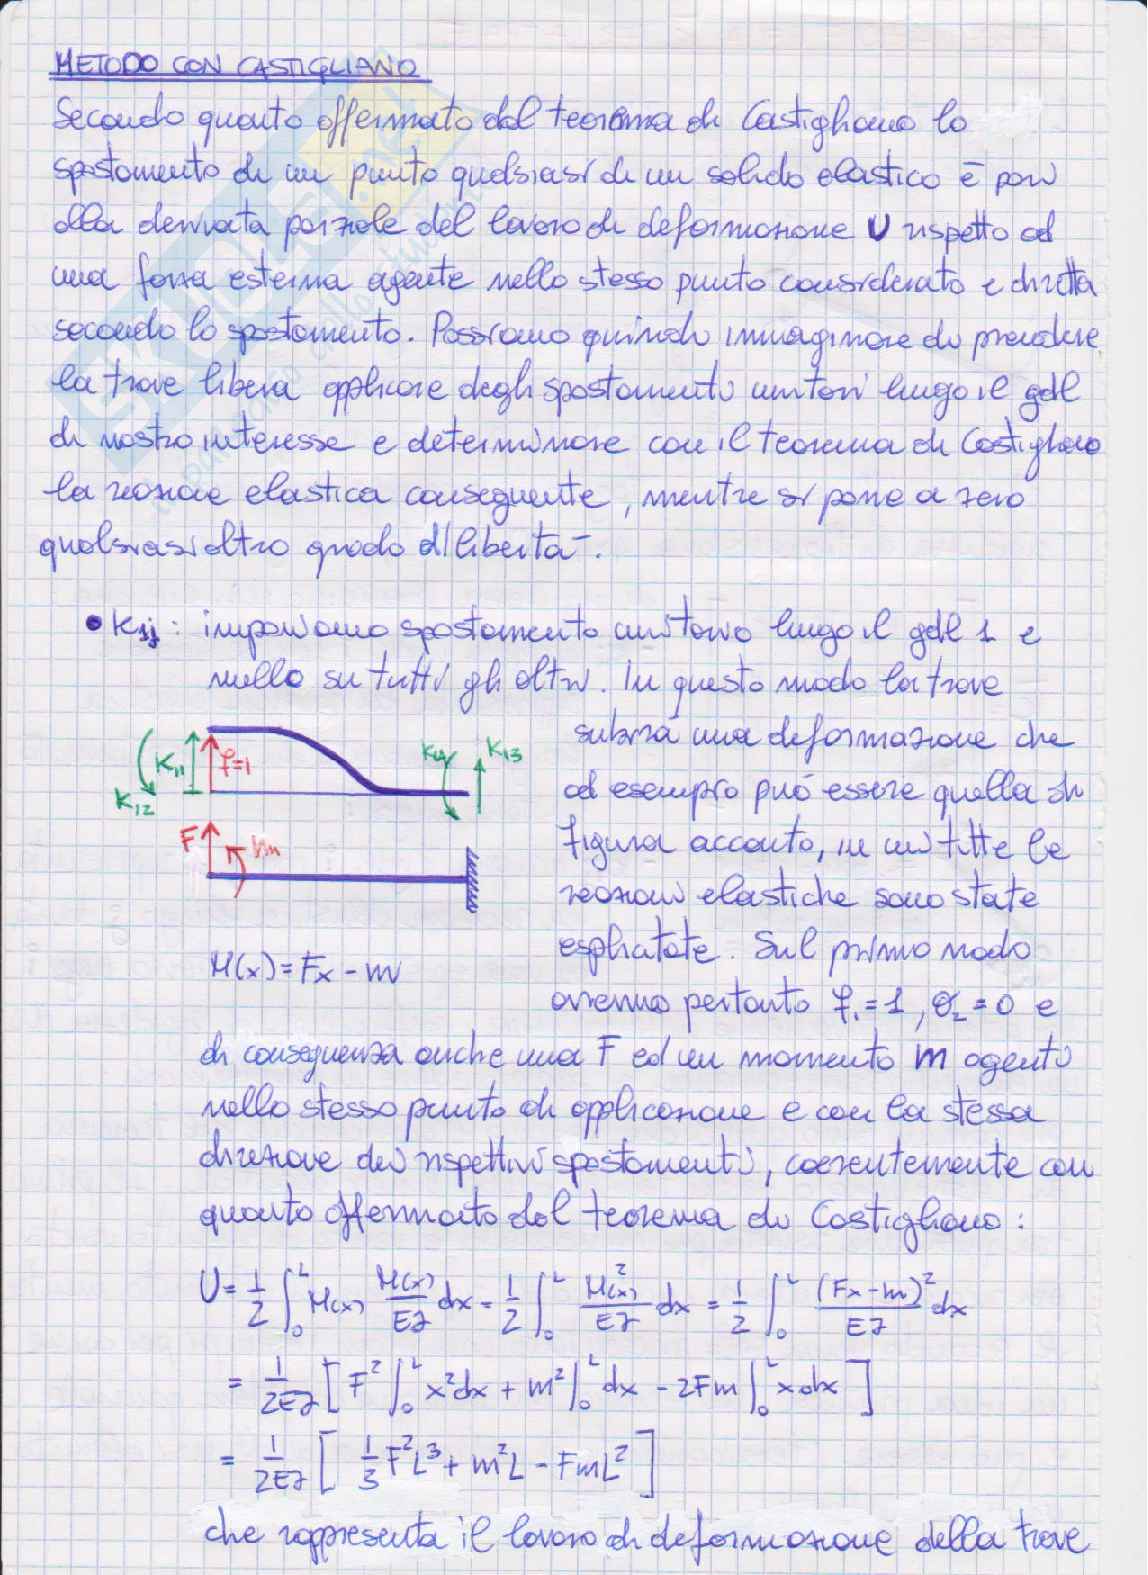 METODO CON CASTIGLIANO
Secondo quanto affermato dal teorema di Castigliano lo
spostamento di un punto qualsiasi di un solido elastico è pari
alla derivata parziale del lavoro di deformazione U rispetto ad
una forza esterna agente nello stesso punto considerato e diretta
secondo lo spostamento. Possiamo quindi immaginare di prendere
la trave libera applicare degli spostamenti unitari lungo il gdl
di nostro interesse e determinare con il teorema di Castigliano
la reazione elastica conseguente, mentre si pone a zero
qualsiasi altro grado di libertà.
• K1j: imponiamo spostamento unitario lungo il gdl 1 e
nullo su tutti gli altri. In questo modo la trave
subirà una deformazione che
ad esempio può essere quella di
figura accanto, in cui tutte le
reazioni elastiche sono state
esplicitate. Sul primo nodo
avremo pertanto f₁=1, θ₂=0 e
K12 K11 f=1 K14 K13
F m
M(x) = Fx - m
di conseguenza anche una F ed un momento m agenti
nello stesso punto di applicazione e con la stessa
direzione dei rispettivi spostamenti, coerentemente con
quanto affermato dal teorema di Castigliano:
U = 1/2 ∫₀ᴸ M(x) M(x)/EJ dx = 1/2 ∫₀ᴸ M²(x)/EJ dx = 1/2 ∫₀ᴸ (Fx-m)²/EJ dx
= 1/2EJ [ F² ∫₀ᴸ x²dx + m² ∫₀ᴸ dx - 2Fm ∫₀ᴸ x dx ]
= 1/2EJ [ 1/3 F²L³ + m²L - FmL² ]
che rappresenta il lavoro di deformazione della trave